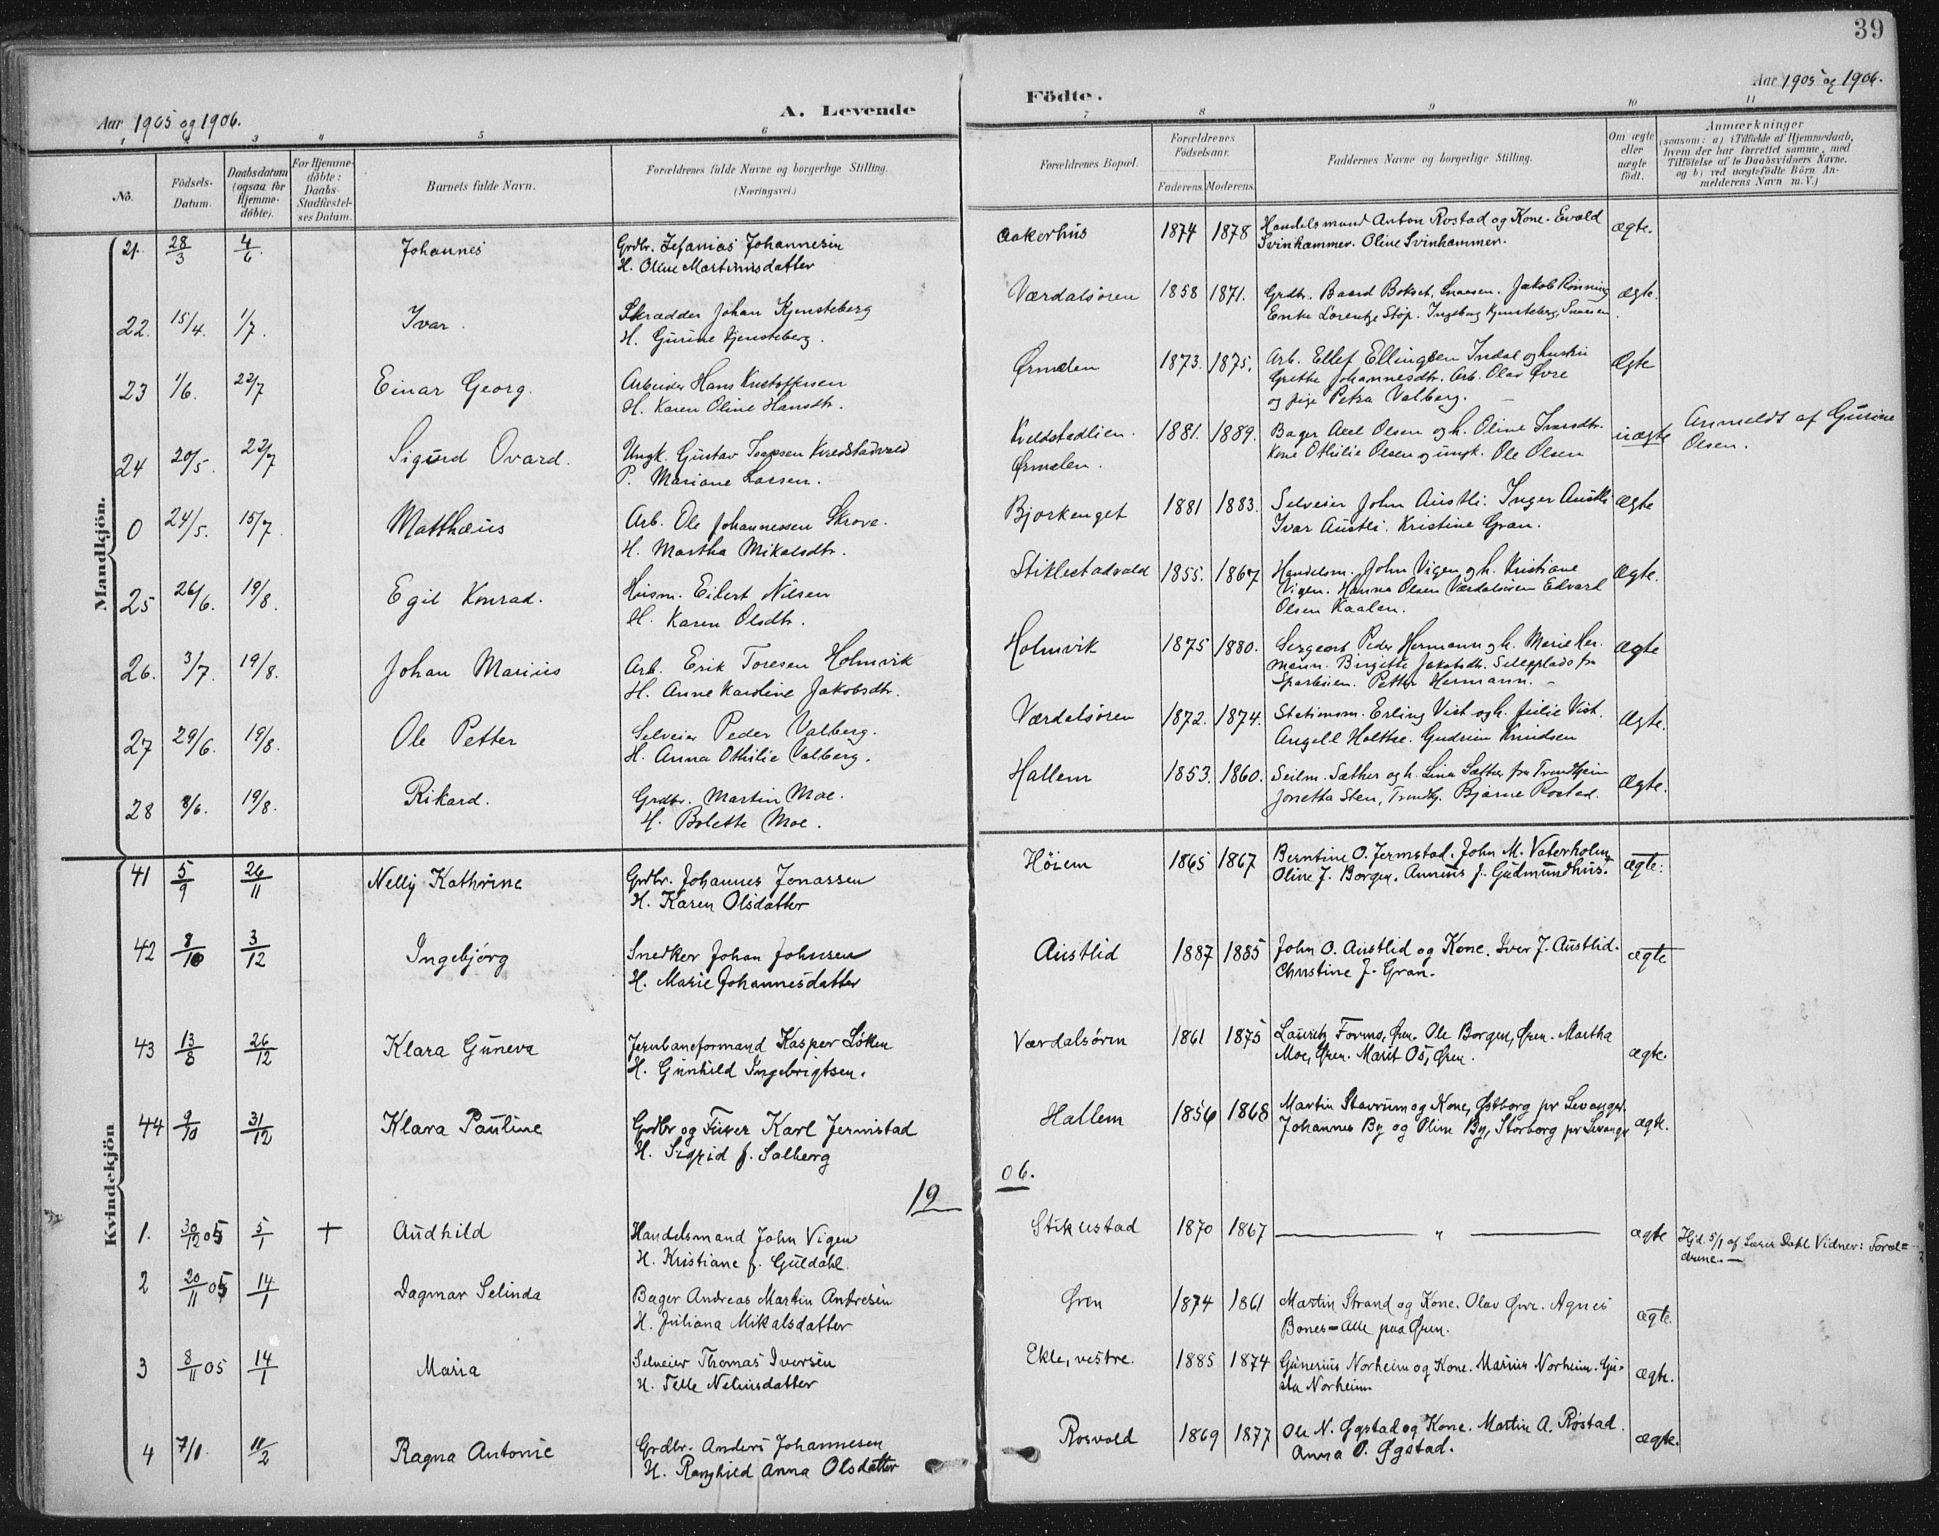 39
Aar 1905 og 1906.
A. Levende
Födte.
Aar 1905 og 1906.
1 2 3 4 5 6
7 8 9 10 11
No.
Födsels-
Datum.
Daabsdatum
(ogsaa for
Hjemme-
döbte).
For Hjemme-
döbte:
Daabs-
Stadfæstel-
ses Datum.
Barnets fulde Navn.
Forældrenes fulde Navne og borgerlige Stilling.
(Næringsvei.)
Forældrenes Bopæl.
Forældrenes
Födselsaar.
Faderens. Moderens.
Faddernes Navne og borgerlige Stilling.
Om ægte
eller
uægte
födt.
Anmærkninger
(saasom: a) i Tilfælde af Hjemmedaab,
hvem der har forrettet samme, med
Tilföielse af to Daabsvidners Navne.
og b) ved uægtefödte Börn An-
melderens Navn m. V.)
Mandkjön.
21. 28/3 4/6 Johannes Grdbr. Zefanias Johannesen
H. Oline Martinusdatter
Aakerhus 1874 1878 Handelsmand Anton Rostad og Kone. Evald
Svinhammer. Oline Svinhammer. ægte.
22. 15/4. 1/7. Ivar. Skrædder Johan Kjensteberg
H. Gurine Kjensteberg.
Værdalsøren 1858 1871. Grdbr. Baard Bokset, Snaasen. Jakob Rönning
Enke Lorentze Stöp. Ingeborg Kjensteberg, Snaasen. ægte.
23 1/6. 22/7 Einar Georg. Arbeider Hans Kristoffersen
H. Karen Oline Hansdtr.
Ørmelen 1873. 1875. Arb. Ellef Ellingsen Indal og hustru
Grethe Johannesdtr. Arb. Olav Øvre
og pige Petra Valberg. Ægte
24 20/5. 22/7 Sigurd Ovard. Ungk. Gustav Kvedstadvald
P. Mariane Larsen.
Kveldstadlien.
Ørmelen. 1881. 1889. Bager Axel Olsen og h. Oline Ivarsdtr.
Kone Othilie Olsen og ungk. Ole Olsen uægte Anmeldt af Gurine
Olsen.
0 24/5. 15/7. Matthæus Arb. Ole Johannessen Skrove.
H. Martha Mikalsdtr.
Bjørkenget 1881 1883. Selveier John Austli. Inger Austli
Ivar Austli. Kristine Gran. ægte
25 26/6. 19/8. Egil Konrad. Husm. Eilert Nilsen
H. Karen Olsdtr.
Stiklestadvald 1855. 1867 Handelsm. John Vigen og h. Kristiane
Vigen. Hanna Olsen Værdalsøren Edvard
Olsen Kaalen. Ægte.
26. 3/7. 19/8. Johan Marius Arb. Erik Toresen Holmvik
H. Anne Karoline Jakobsdtr.
Holmvik 1875 1880. Sergeant Peder Hermann og h. Marie Her-
mann. Birgitte Jakobsdtr. fra
Sparbuen. Petter Hermann. ægte
27 29/6. 19/8. Ole Petter Selveier Peder Valberg.
H. Anna Othilie Valberg.
Værdalsøren 1872. 1874. Stationsm. Erling Vist og h. Julie Vist.
Angell Holthe. Gudrun Knudsen Ægte.
28 8/6. 19/8. Rikard. Grdbr. Martin Moe.
H. Bolette Moe.
Hallem 1853. 1860. Seilm. Sæther og h. Lina Sæther fra Trondhjem
Jonetha Sten, Trondhj. Bjarne Rostad. Ægte.
Kvindekjön
41 5/9 26/11 Nelly Kathrine Grdbr. Johannes Jonassen
H. Karen Olsdatter
Høiem 1865 1867 Berntine O. Jermstad. John M. Vaterholm
Oline J. Borgen. Annæus J. Gudmundhus. ægte.
42 8/10 3/12 Ingebjørg Snedker Johan Johnsen
H. Marie Johannesdatter
Austlid 1887 1885 John O. Austlid og Kone. Iver J. Austlid.
Christine J. Gran. ægte
43 13/8 26/12 Klara Guneva Jernbaneformand Kasper Løken
H. Gunhild Ingebrigtsen.
Værdalsøren 1861 1875 Lauritz Formo, Øren. Ole Borgen, Øren. Martha
Moe, Øren. Marit Os, Øren. ægte.
44 9/10 31/12 Klara Pauline Grdbr og Fisker Karl Jermstad
H. Sigrid f. Salberg
Hallem 1856 1868 Martin Stavrum og Kone, Østborg pr Levanger.
Johannes By og Oline By, Storborg pr Levanger ægte.
19 06.
1. 30/12 05 5/1 + Audhild Handelsmand John Vigen
H. Kristiane f. Guldahl.
Stiklestad 1870 1867 — " — ægte Hjd. 5/1 af Lærer Dahl Vidner: Foræl=
drene.—
2 20/11 05 14/1 Dagmar Selinda Bager Andreas Martin Andresen
H. Juliana Mikalsdatter
Øren 1874 1861 Martin Strand og Kone. Olav Øvre. Agnes
Bones – Alle paa Øren. ægte.
3 8/11 05 14/1 Maria Selveier Thomas Iversen
H. Nelinsdatter
Ekle, vestre. 1885 1874 Gunerius Norheim og Kone. Marius Norheim. Gu-
sta Norheim ægte.
4 7/1. 11/2 Ragna Antonie Grdbr. Anders Johannesen
H. Ranghild Anna Olsdatter
Rosvold 1869 1877 Ole N. Øgstad og Kone. Martin A. Røstad.
Anna O. Øgstad. ægte.